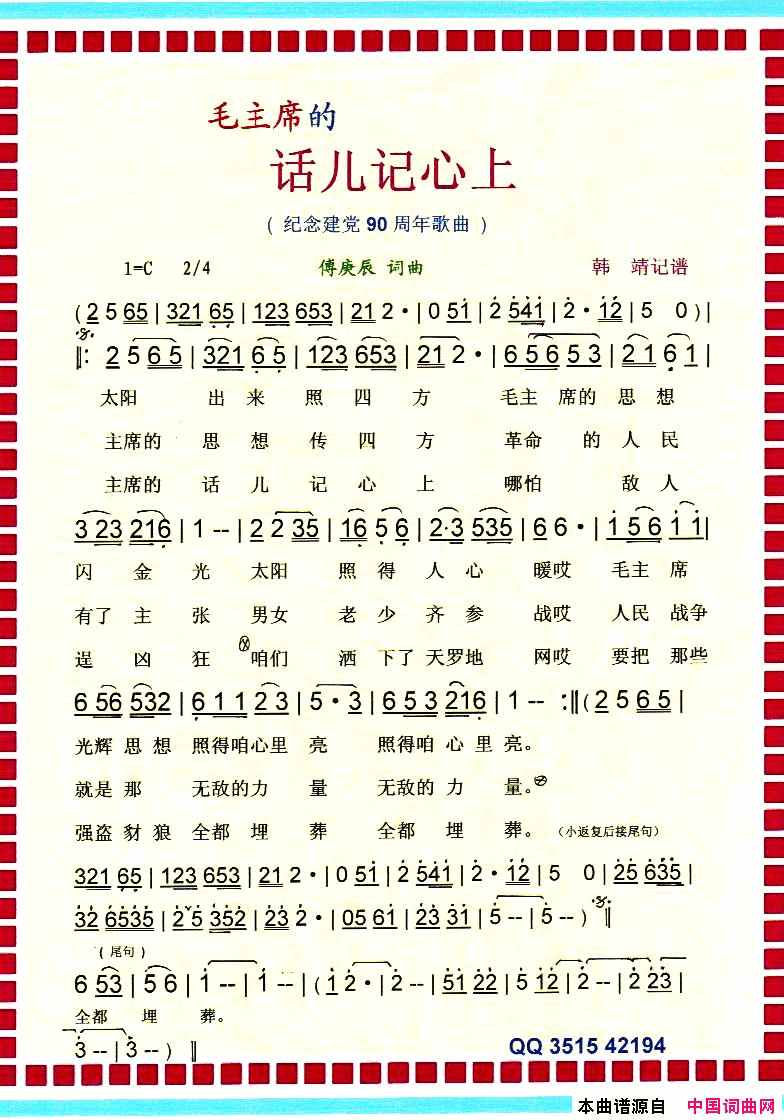 毛主席的
话儿记心上
( 纪念建党 90 周年歌曲 )
1=C 2/4 傅庚辰 词曲 韩 靖记谱
( 2 5 65 | 321 65 | 123 653 | 21 2 · | 0 51 | 2 541 | 2 · 12 | 5 0 ) |
‖: 2 5 6 5 | 321 6 5 | 123 653 | 21 2 · | 6 5 6 5 3 | 2 1 6 1 |
太阳 出 来 照 四 方 毛主 席的 思 想
主席的 思 想 传 四 方 革命 的 人 民
主席的 话 儿 记 心 上 哪怕 敌 人
3 23 216 | 1 -- | 2 2 35 | 16 5 6 | 2·3 535 | 6 6 · | 1 5 6 1 1 |
闪 金 光 太阳 照 得 人 心 暖哎 毛主 席
有了 主 张 男女 老 少 齐 参 战哎 人民 战争
逞 凶 狂 咱们 洒 下了 天罗地 网哎 要把 那些
6 56 532 | 6 1 1 2 3 | 5 · 3 | 6 5 3 216 | 1 -- :‖ ( 2 5 6 5 |
光辉 思 想 照得咱心里 亮 照得咱 心 里 亮。
就是 那 无敌的力 量 无敌的 力 量。
强盗 豺 狼 全都 埋 葬 全都 埋 葬。 (小返复后接尾句)
321 65 | 123 653 | 21 2 · | 0 51 | 2 541 | 2 · 12 | 5 0 | 25 635 |
32 6535 | 2 5 352 | 23 2 · | 05 61 | 23 31 | 5 -- | 5 -- ) ‖
( 尾句 )
6 53 | 5 6 | 1 -- | 1 -- | ( 1 2 · | 2 -- | 51 22 | 5 12 | 2 -- | 2 23 |
全都 埋 葬。
3 -- | 3 -- ) ‖
QQ 3515 42194
本曲谱源自 中国词曲网